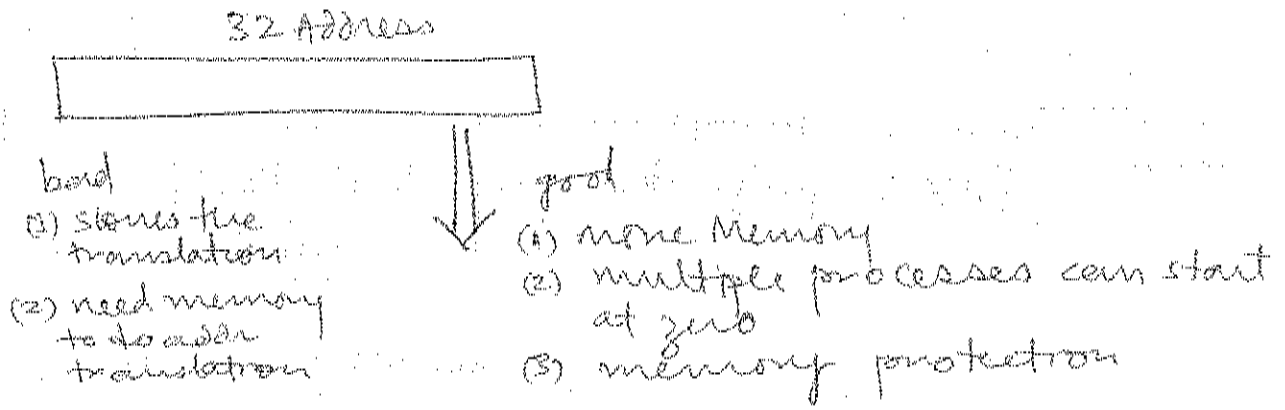 32 Address
bad
(1) stores the
translation
(2) need memory
to do addr
translation
good
(1) more Memory
(2) multiple processes can start
at zero
(3) memory protection